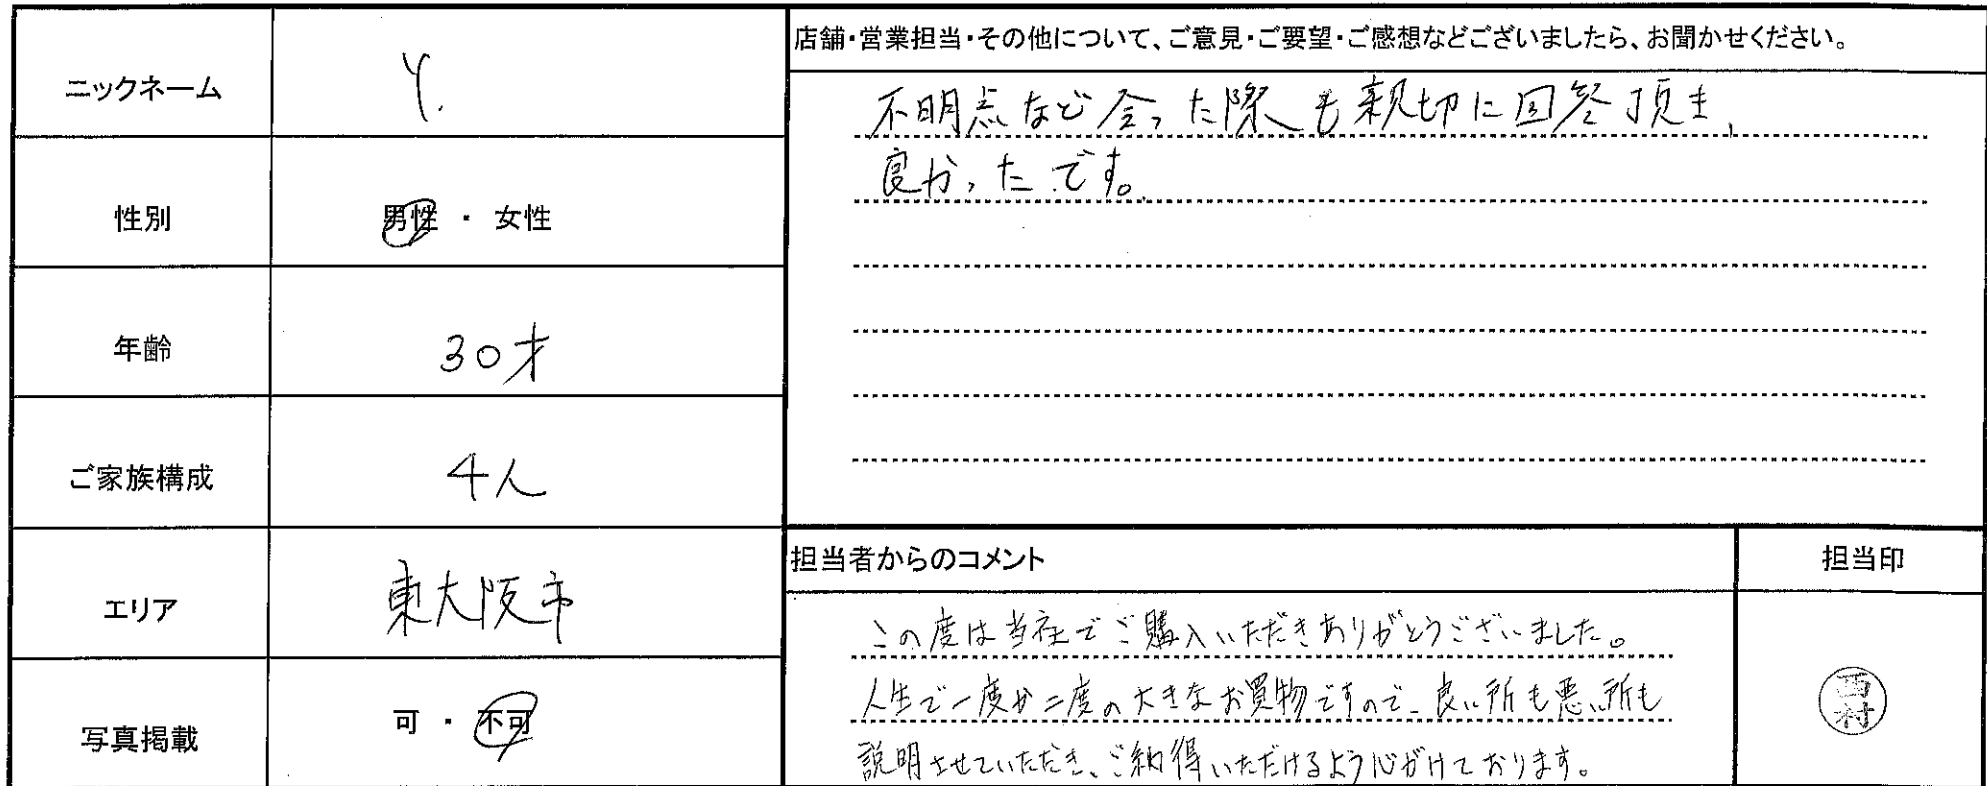 ニックネーム Y.
性別 男性 ・ 女性
年齢 30才
ご家族構成 4人
エリア 東大阪市
写真掲載 可 ・ 不可
店舗・営業担当・その他について、ご意見・ご要望・ご感想などございましたら、お聞かせください。
不明点など会った際も親切に回答頂き、
良かったです。
担当者からのコメント
この度は当社でご購入いただきありがとうございました。
人生で一度か二度の大きなお買物ですので、良い所も悪い所も
説明させていただき、ご納得いただけるよう心がけております。
担当印
西村